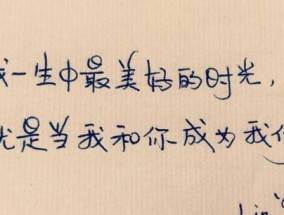 我一生中最美好的时光，
就是当我和你成为我们
Lin